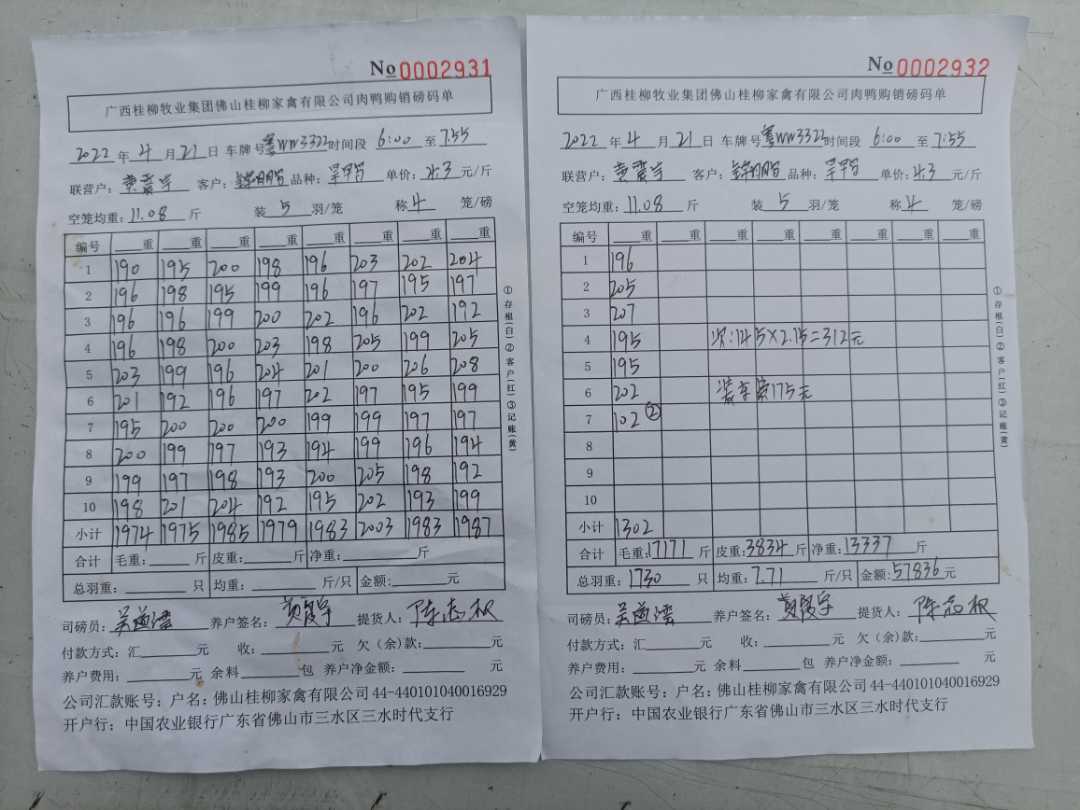 No 0002931
广西桂柳牧业集团佛山桂柳家禽有限公司肉鸭购销磅码单
2022 年 4 月 21 日 车牌号 粤WW3322 时间段 6:00 至 7:55
联营户: 客户: 品种: 单价: 4.3 元/斤
空笼均重: 11.08 斤 装 5 羽/笼 称 4 笼/磅
编号 重 重 重 重 重 重 重 重
1 190 195 200 198 196 203 202 204
2 196 198 195 199 196 197 195 197
3 196 196 199 200 202 196 202 192
4 196 198 200 203 198 205 199 205
5 203 199 196 204 201 200 206 208
6 201 192 196 197 202 197 195 199
7 195 200 200 200 199 199 197 197
8 200 199 197 193 194 199 196 194
9 199 197 198 193 200 205 198 192
10 198 201 204 192 195 202 193 199
小计 1974 1975 1985 1979 1983 2003 1983 1987
合计 毛重: 斤 皮重: 斤 净重: 斤
总羽重: 只 均重: 斤/只 金额: 元
司磅员: 养户签名: 提货人: 陈志权
付款方式: 汇 元 收: 元 欠(余)款: 元
养户费用: 元 余料 包 养户净金额: 元
公司汇款账号: 户名: 佛山桂柳家禽有限公司 44-440101040016929
开户行: 中国农业银行广东省佛山市三水区三水时代支行
①存根(白)②客户(红)③记账(黄)
No 0002932
广西桂柳牧业集团佛山桂柳家禽有限公司肉鸭购销磅码单
2022 年 4 月 21 日 车牌号 粤WW3322 时间段 6:00 至 7:55
联营户: 客户: 品种: 单价: 4.3 元/斤
空笼均重: 11.08 斤 装 5 羽/笼 称 4 笼/磅
编号 重 重 重 重 重 重 重 重
1 196
2 205
3 207
4 195 次:145×2.15=312元
5 195
6 202 装车费175元
7 102 ②
8
9
10
小计 1302
合计 毛重: 17171 斤 皮重: 3834 斤 净重: 13337 斤
总羽重: 1730 只 均重: 7.71 斤/只 金额: 57836 元
司磅员: 养户签名: 提货人: 陈志权
付款方式: 汇 元 收: 元 欠(余)款: 元
养户费用: 元 余料 包 养户净金额: 元
公司汇款账号: 户名: 佛山桂柳家禽有限公司 44-440101040016929
开户行: 中国农业银行广东省佛山市三水区三水时代支行
①存根(白)②客户(红)③记账(黄)